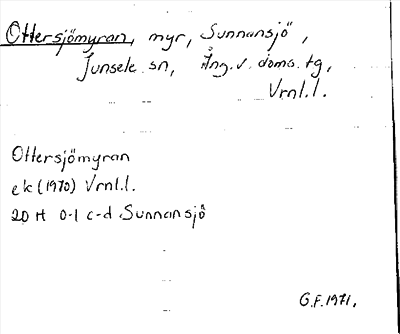 Ottersjömyran, myr, Sunnansjö,
Junsele sn, Ång. v. doms. tg,
Vrnl.l.
Ottersjömyran
ek (1970) Vrnl.l.
20 H 0-1 c-d Sunnansjö
G.F. 1971.